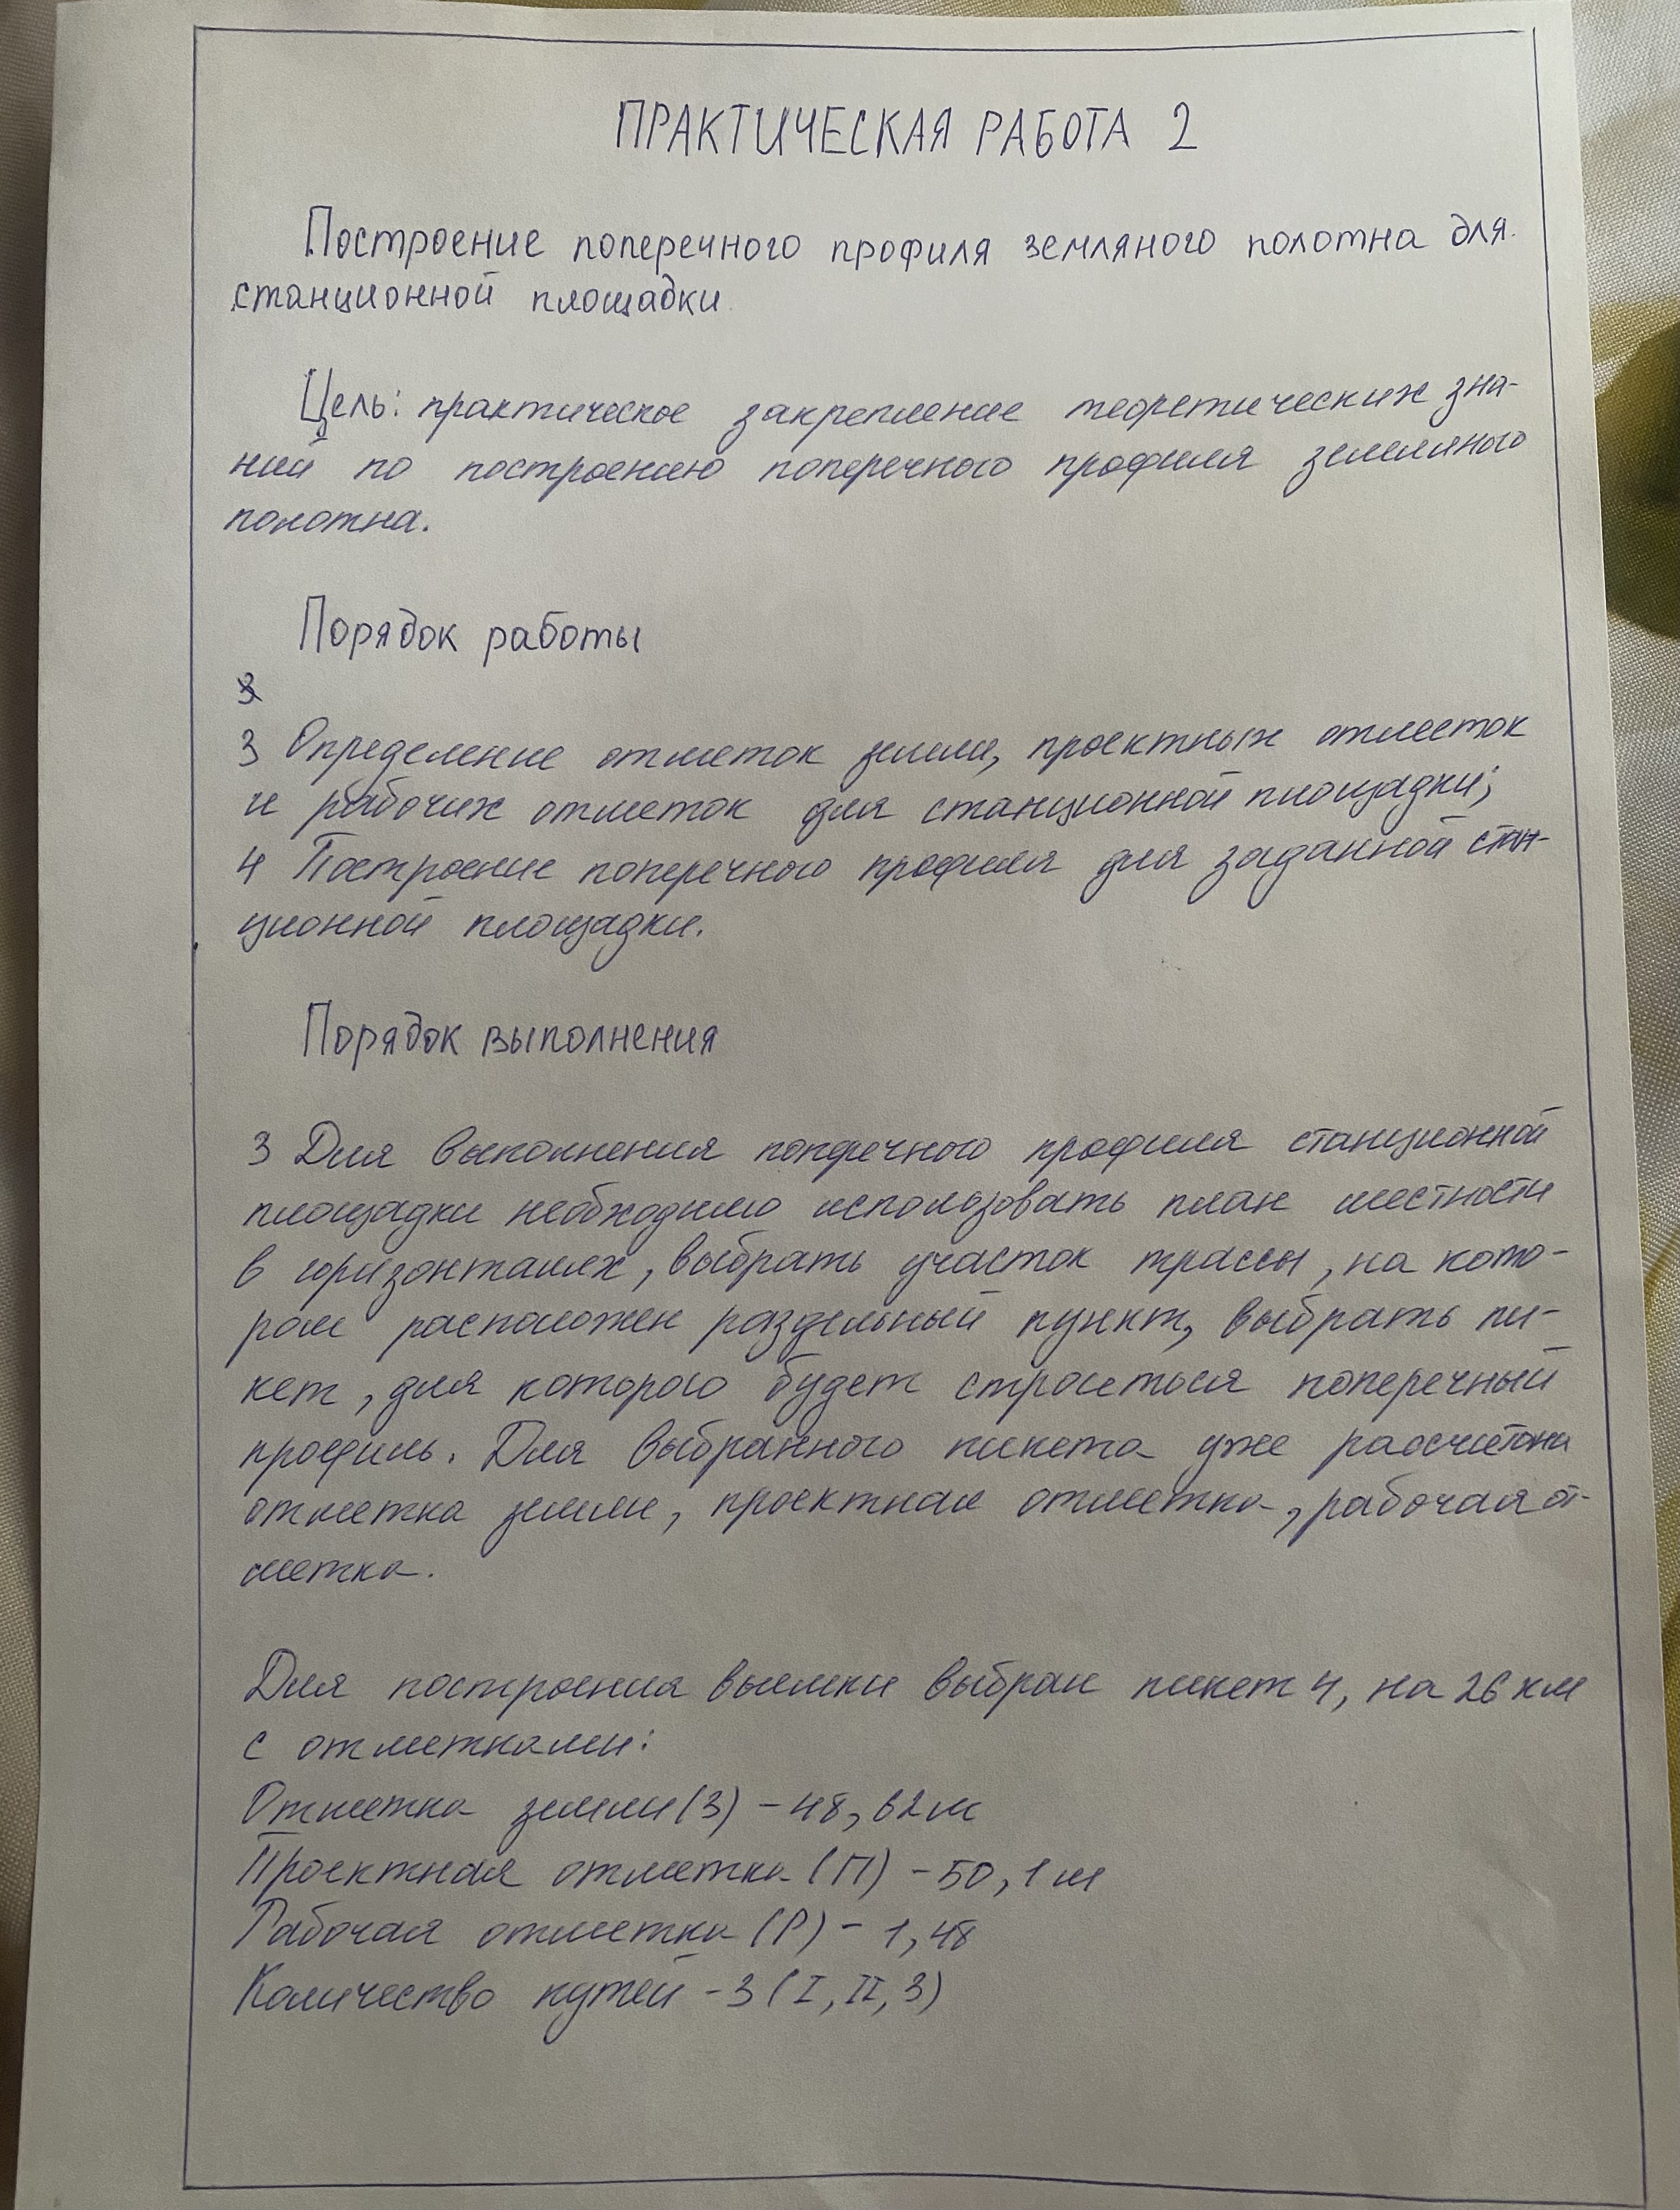 ПРАКТИЧЕСКАЯ РАБОТА 2
Построение поперечного профиля земляного полотна для
станционной площадки
Цель: практическое закрепление теоретических зна-
ний по построению поперечного профиля земляного
полотна.
Порядок работы
3 Определение отметок земли, проектных отметок
и рабочих отметок для станционной площадки;
4 Построение поперечного профиля для заданной стан-
ционной площадки.
Порядок выполнения
3 Для выполнения поперечного профиля станционной
площадки необходимо использовать план местности
в горизонталях, выбрать участок трассы, на кото-
ром расположен раздельный пункт, выбрать пи-
кет, для которого будет строиться поперечный
профиль. Для выбранного пикета уже рассчитана
отметка земли, проектная отметка, рабочая от-
метка.
Для построения выемки выбран пикет 4, на 26 км
с отметками:
Отметка земли (З) - 48,62 м
Проектная отметка (П) - 50,1 м
Рабочая отметка (Р) - 1,48
Количество путей - 3 (I, II, 3)